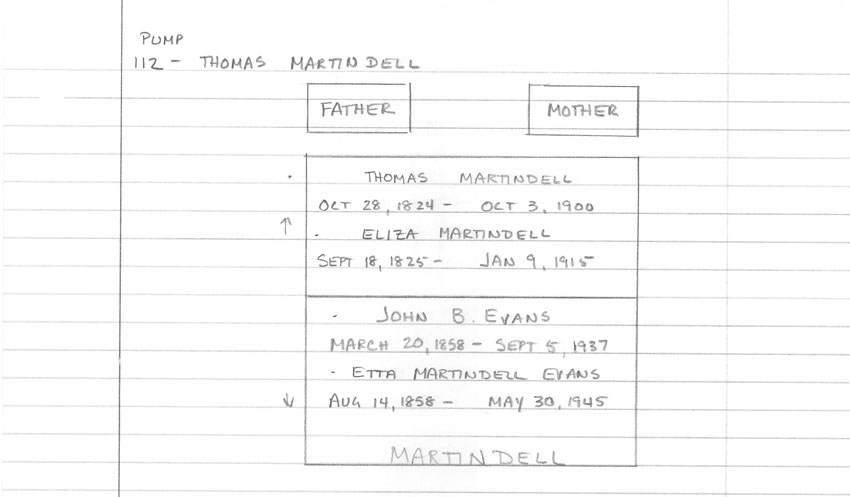 PUMP
112 - THOMAS MARTINDELL
FATHER MOTHER
THOMAS MARTINDELL
OCT 28, 1824 - OCT 3, 1900
↑ . ELIZA MARTINDELL
SEPT 18, 1825 - JAN 9, 1915
- JOHN B. EVANS
MARCH 20, 1858 - SEPT 5, 1937
- ETTA MARTINDELL EVANS
↓ AUG 14, 1858 - MAY 30, 1945
MARTINDELL